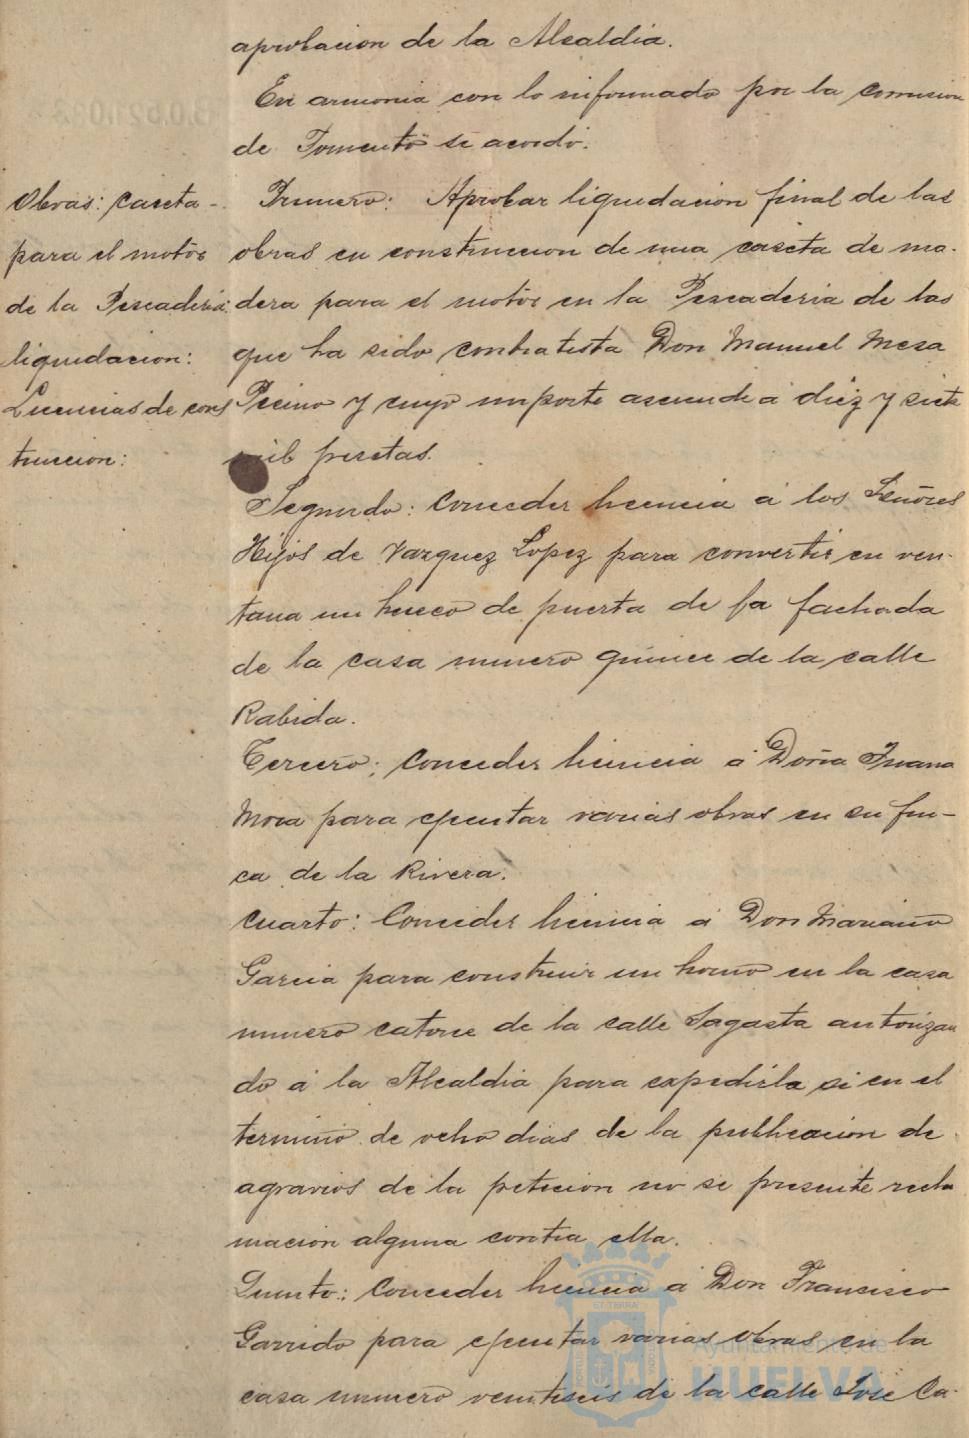 aprobacion de la Alcaldia.
En armonia con lo informado por la comision
de Fomento se acordó:
Obras: caseta
para el motor
de la Pescaderia:
liquidacion:
Licencias de cons
truccion:
Primero: Aprobar liquidacion final de las
obras en construccion de una caseta de ma-
dera para el motor en la Pescaderia de las
que ha sido contratista Don Manuel Mesa
Pecino y cuyo importe asciende á diez y siete
mil pesetas.
Segundo: Conceder licencia á los Señores
Hijos de Vazquez Lopez para convertir en ven-
tana un hueco de puerta de la fachada
de la casa numero quince de la calle
Rabida.
Tercero: Conceder licencia á Doña Juana
Mora para ejecutar varias obras en su fin-
ca de la Rivera.
Cuarto: Conceder licencia á Don Mariano
Garcia para construir un horno en la casa
numero catorce de la calle Sagasta autorizan
do á la Alcaldia para expedirla si en el
termino de ocho dias de la publicacion de
agravios de la peticion no se presente recla
macion alguna contra ella.
Quinto: Conceder licencia á Don Francisco
Garrido para ejecutar varias obras en la
casa numero veintiseis de la calle José Ca-
Ayuntamiento de
HUELVA